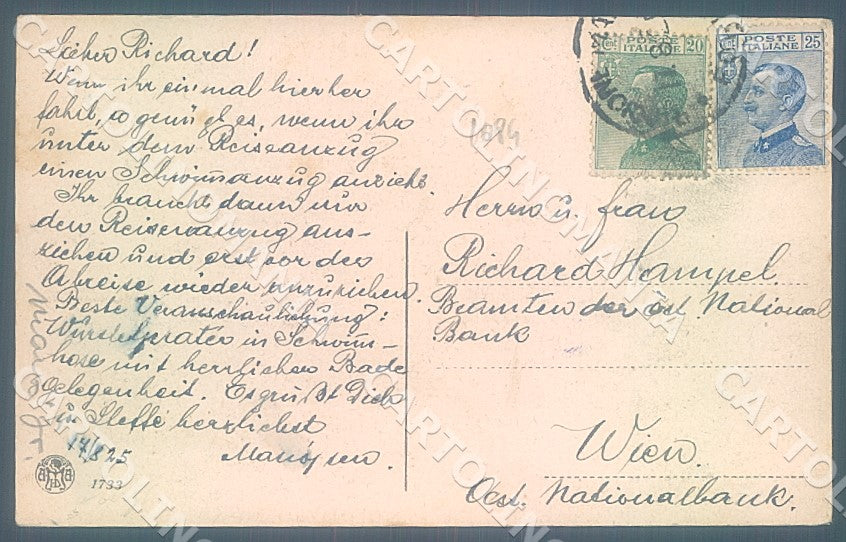 Lieber Richard!
Wenn ihr einmal hierher
fahrt, so genügt es, wenn ihr
unter dem Reiseanzug
einen Schwimmanzug anzieht.
Ihr braucht dann nur
den Reiseanzug aus-
ziehen und erst vor der
Abreise wieder anzuziehen.
Beste Veranschaulichung:
Wurstelprater in Schwimm-
hose mit herrlicher Bade
Gelegenheit. Es grüßt Dich
u. Steffi herzlichst
14/8 25
1733
1084
POSTE ITALIANE 20
POSTE ITALIANE 25
Herrn u. Frau
Richard Hampel
Beamten der öst National
Bank
Wien.
Oest. Nationalbank.
CARTOLINOMANIA